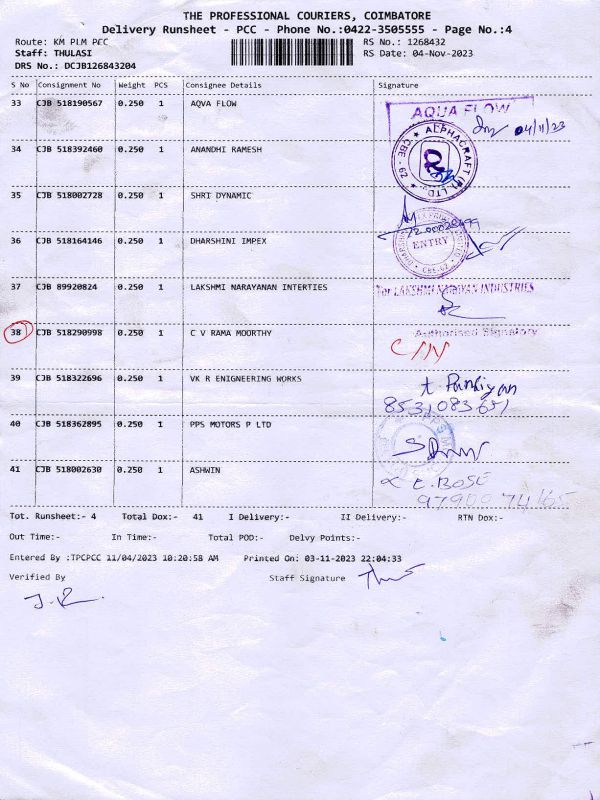 THE PROFESSIONAL COURIERS, COIMBATORE
Delivery Runsheet - PCC - Phone No.:0422-3505555 - Page No.:4
Route: KM PLM PCC RS No.: 1268432
Staff: THULASI RS Date: 04-Nov-2023
DRS No.: DCJB126843204
S No Consignment No Weight PCS Consignee Details Signature
33 CJB 518190567 0.250 1 AQVA FLOW
AQUA FLOW
04/11/23
34 CJB 518392460 0.250 1 ANANDHI RAMESH
ALPHACRAFT (P) LTD. CBE - 29
35 CJB 518002728 0.250 1 SHRI DYNAMIC
36 CJB 518164146 0.250 1 DHARSHINI IMPEX
ENTRY
37 CJB 89920824 0.250 1 LAKSHMI NARAYANAN INTERTIES
For LAKSHMI NARAYAN INDUSTRIES
38 CJB 518290998 0.250 1 C V RAMA MOORTHY
Authorised Signatory
39 CJB 518322696 0.250 1 VK R ENIGNEERING WORKS
t. Pandiyan
8531083651
40 CJB 518362895 0.250 1 PPS MOTORS P LTD
41 CJB 518002630 0.250 1 ASHWIN
E. BOSE
Tot. Runsheet:- 4 Total Dox:- 41 I Delivery:- II Delivery:- RTN Dox:-
Out Time:- In Time:- Total POD:- Delvy Points:-
Entered By :TPCPCC 11/04/2023 10:20:58 AM Printed On: 03-11-2023 22:04:33
Verified By Staff Signature